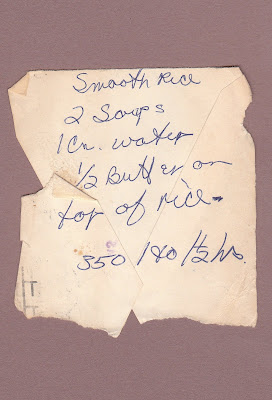 Smooth Rice
2 Soups
1 Cn. water
1/2 Butter on
top of rice-
350 1 1/2 hr.